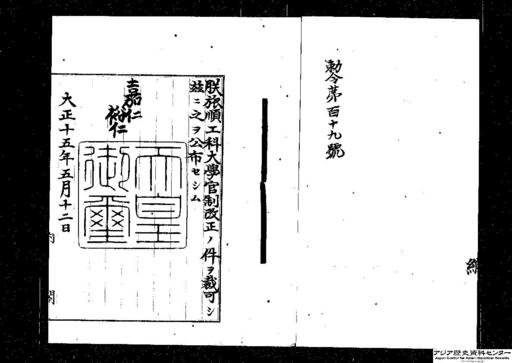 勅令第百十九號
朕旅順工科大學官制改正ノ件ヲ裁可シ
玆ニ之ヲ公布セシム
嘉仁
裕仁
天皇御璽
大正十五年五月十二日
内閣
アジア歴史資料センター
Japan Center for Asian Historical Records